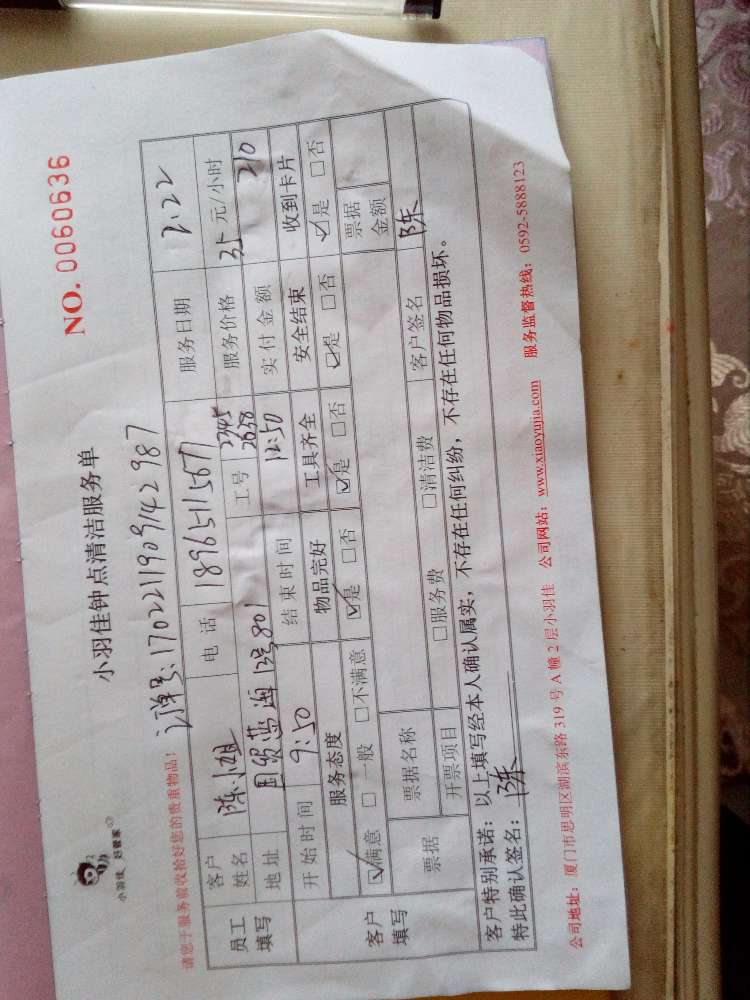 小羽佳 好管家
小羽佳钟点清洁服务单
NO. 0060636
请您于服务前收拾好您的贵重物品！
订单号:170221190914 2987
员工填写 客户姓名 陈小姐 电话 18965115671 服务日期 2.22
地址 国贸蓝海12号801 工号 2345 2658 服务价格 35 元/小时
开始时间 9:50 结束时间 12:50 实付金额 210
客户填写 服务态度 物品完好 工具齐全 安全结束 收到卡片
☑满意 □一般 □不满意 ☑是 □否 ☑是 □否 ☑是 □否 ☑是 □否
票据 票据名称 票据金额
开票项目 □服务费 □清洁费 客户签名 陈
客户特别承诺：以上填写经本人确认属实，不存在任何纠纷，不存在任何物品损坏。
特此确认签名：陈
公司地址：厦门市思明区湖滨东路 319 号 A 幢 2 层小羽佳 公司网站：www.xiaoyujia.com 服务监督热线：0592-5888123